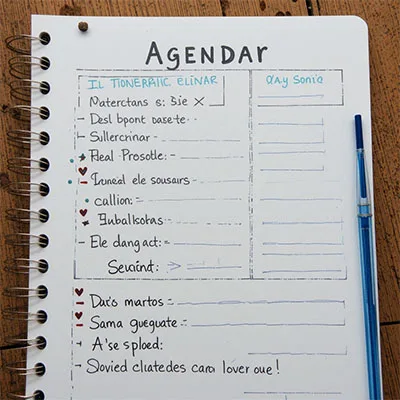 AGENDAr
IL TIONERAIIC ELINAR
aay Sonia
Materctans s: Bie ×
Desl bpont oaste
Sullercrinar -
Real Prosotle: -
ele sousairs -
callion: -
Eubalkotas
Ele dang act: -
Sewind: >
Daro martos =
Sama gueguate: -
A'se sploed:
Sovied cluatedes cara lover oue!